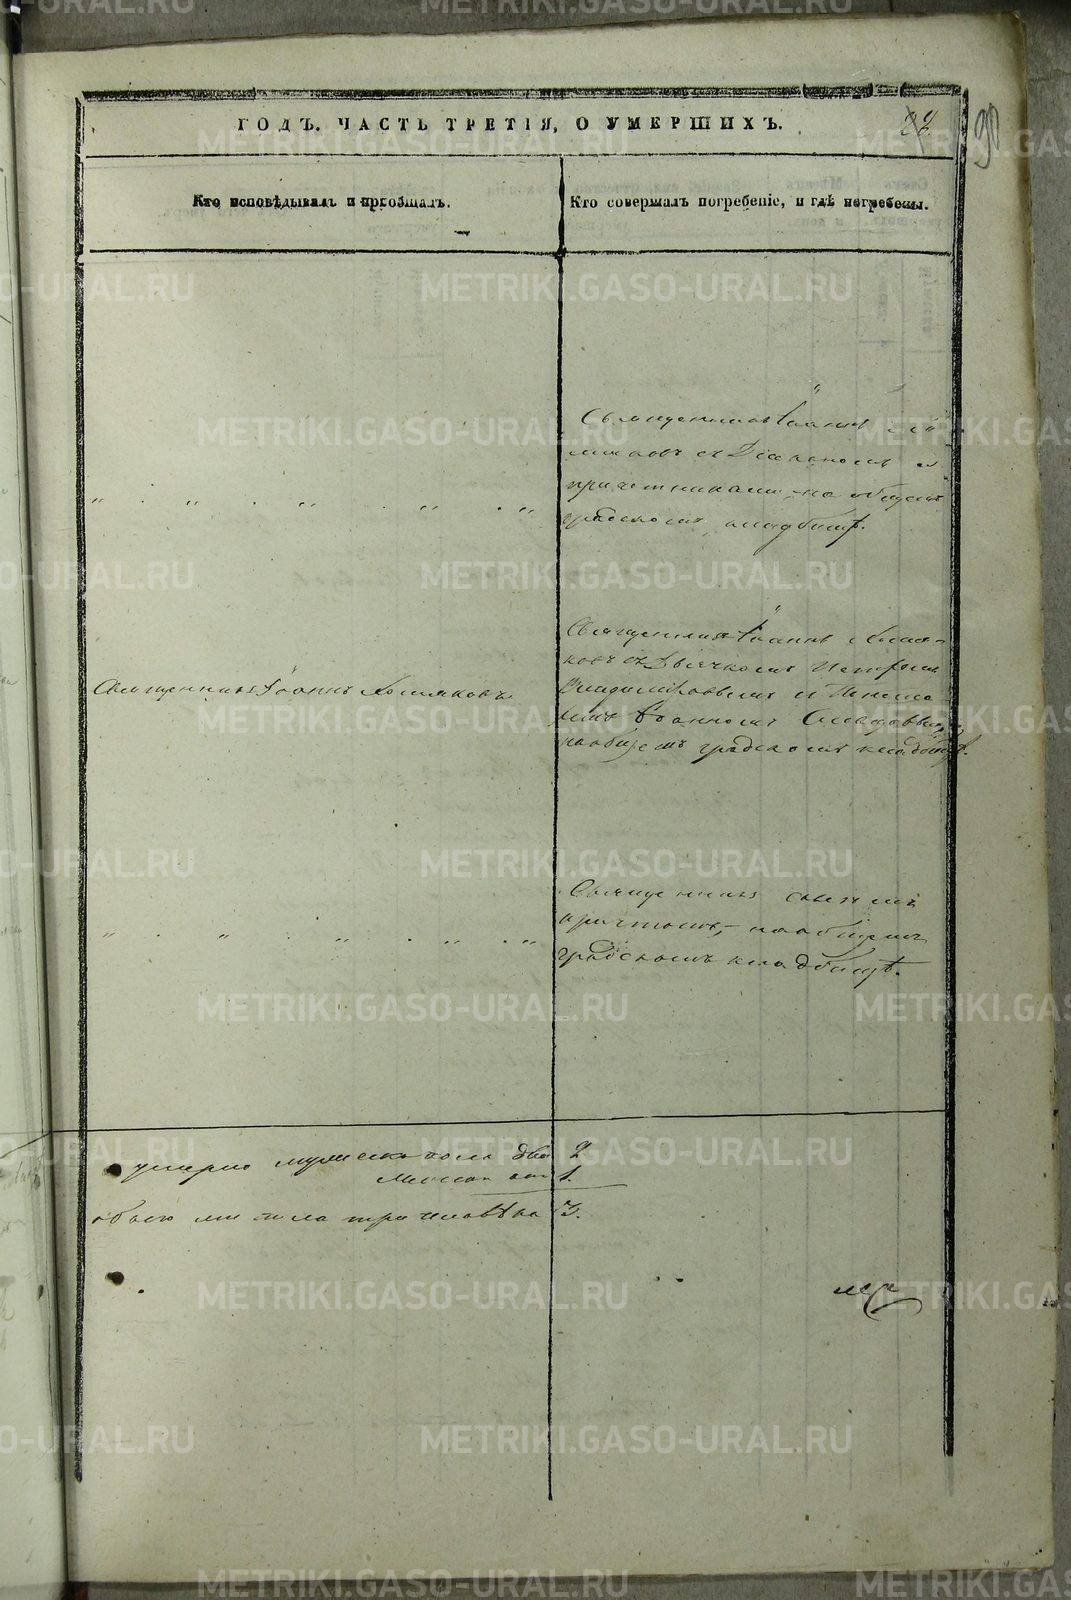 ГОДЪ. ЧАСТЬ ТРЕТІЯ, О УМЕРШИХЪ.
90
Кто исповѣдывалъ и пріобщалъ.
Кто совершалъ погребеніе, и гдѣ погребены.
Священникъ Іоаннъ
съ Діакономъ и
причетниками, на общемъ
градскомъ кладбищѣ.
Священникъ Іоаннъ Хомяковъ
Священникъ Іоаннъ Хомя-
ковъ съ Дьячкомъ Петромъ
и Понома
Іоанномъ
на общемъ градскомъ кладбищѣ.
Священникъ
причтомъ, – на общемъ
градскомъ кладбищѣ.
умерло мужеска пола два 2
женска 1.
обоего три человѣка 3.
METRIKI.GASO-URAL.RU